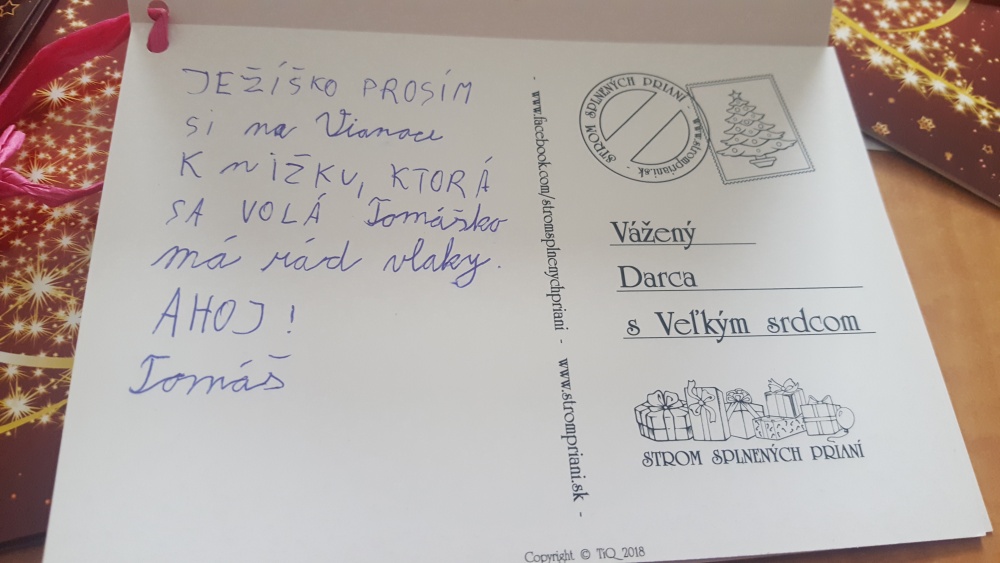 JEŽÍŠKO PROSÍM
si na Vianoce
KNIŽKU, KTORÁ
SA VOLÁ Tomáško
má rád vlaky.
AHOJ!
Tomáš
- www.facebook.com/stromsplnenychpriani - www.stromprianí.sk -
STROM SPLNENÝCH PRIANÍ - www.stromprianí.sk -
Vážený
Darca
s Veľkým srdcom
STROM SPLNENÝCH PRIANÍ
Copyright © TiQ 2018